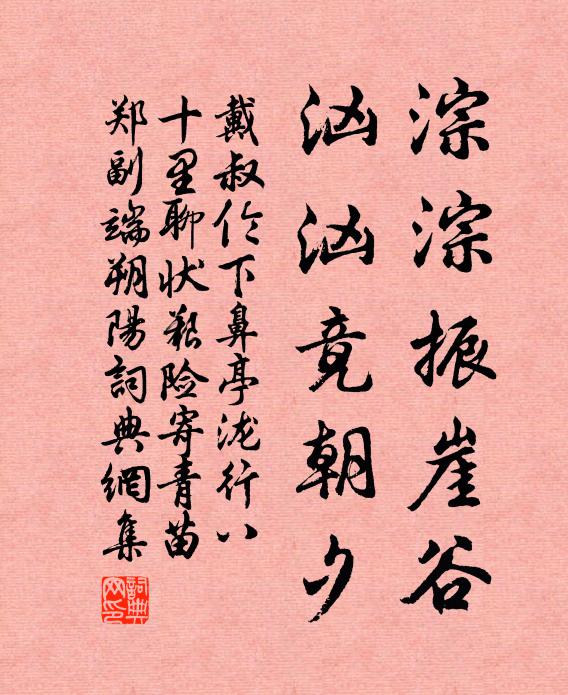 淙淙振崖谷
汹汹竟朝夕
戴叔伦下鼻亭泷行八
十里聊状艰险寄青苗
郑副端朔陽詞典網集
詞典
网印